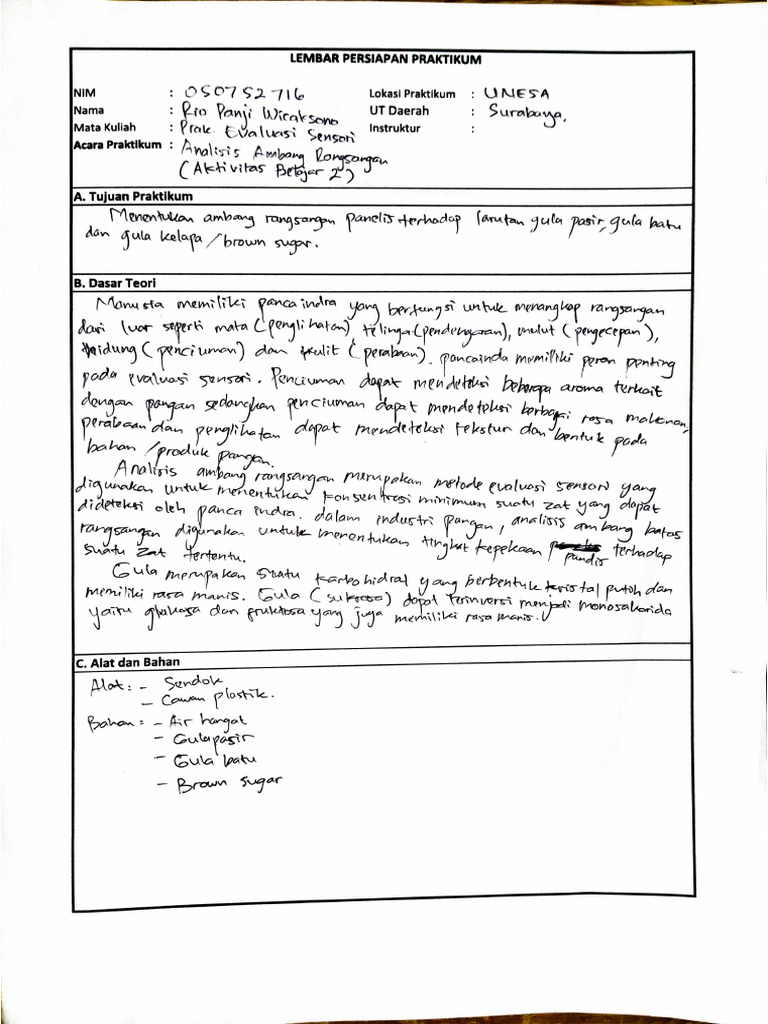 LEMBAR PERSIAPAN PRAKTIKUM
NIM : 050752716 Lokasi Praktikum : UNESA
Nama : Rio Panji Wicaksono UT Daerah : Surabaya.
Mata Kuliah : Prak. Evaluasi Sensori Instruktur :
Acara Praktikum : Analisis Ambang Rangsangan
(Aktivitas Belajar 2)
A. Tujuan Praktikum
Menentukan ambang rangsangan panelis terhadap larutan gula pasir, gula batu
dan gula kelapa/brown sugar.
B. Dasar Teori
Manusia memiliki panca indra yang berfungsi untuk menangkap rangsangan
dari luar seperti mata (penglihatan), telinga (pendengaran), mulut (pengecepan),
hidung (penciuman) dan kulit (perabaan). pancainda memiliki peran penting
pada evaluasi sensori. Penciuman dapat mendeteksi beberapa aroma terkait
dengan pangan sedangkan penciuman dapat mendeteksi berbagai rasa makanan,
perabaan dan penglihatan dapat mendeteksi tekstur dan bentuk pada
bahan /produk pangan.
Analisis ambang rangsangan merupakan metode evaluasi sensori yang
digunakan untuk menentukan konsentrasi minimum suatu zat yang dapat
dideteksi oleh panca indra. dalam industri pangan, analisis ambang batas
rangsangan digunakan untuk menentukan tingkat kepekaan terhadap
suatu zat tertentu.
Gula merupakan suatu karbohidrat yang berbentuk kristal putih dan
memiliki rasa manis. Gula (sukrosa) dapat terinversi menjadi monosakarida
yaitu glukosa dan fruktosa yang juga memiliki rasa manis.
C. Alat dan Bahan
Alat : - Sendok
- Cawan plastik.
Bahan : - Air hangat
- Gula pasir
- Gula batu
- Brown sugar